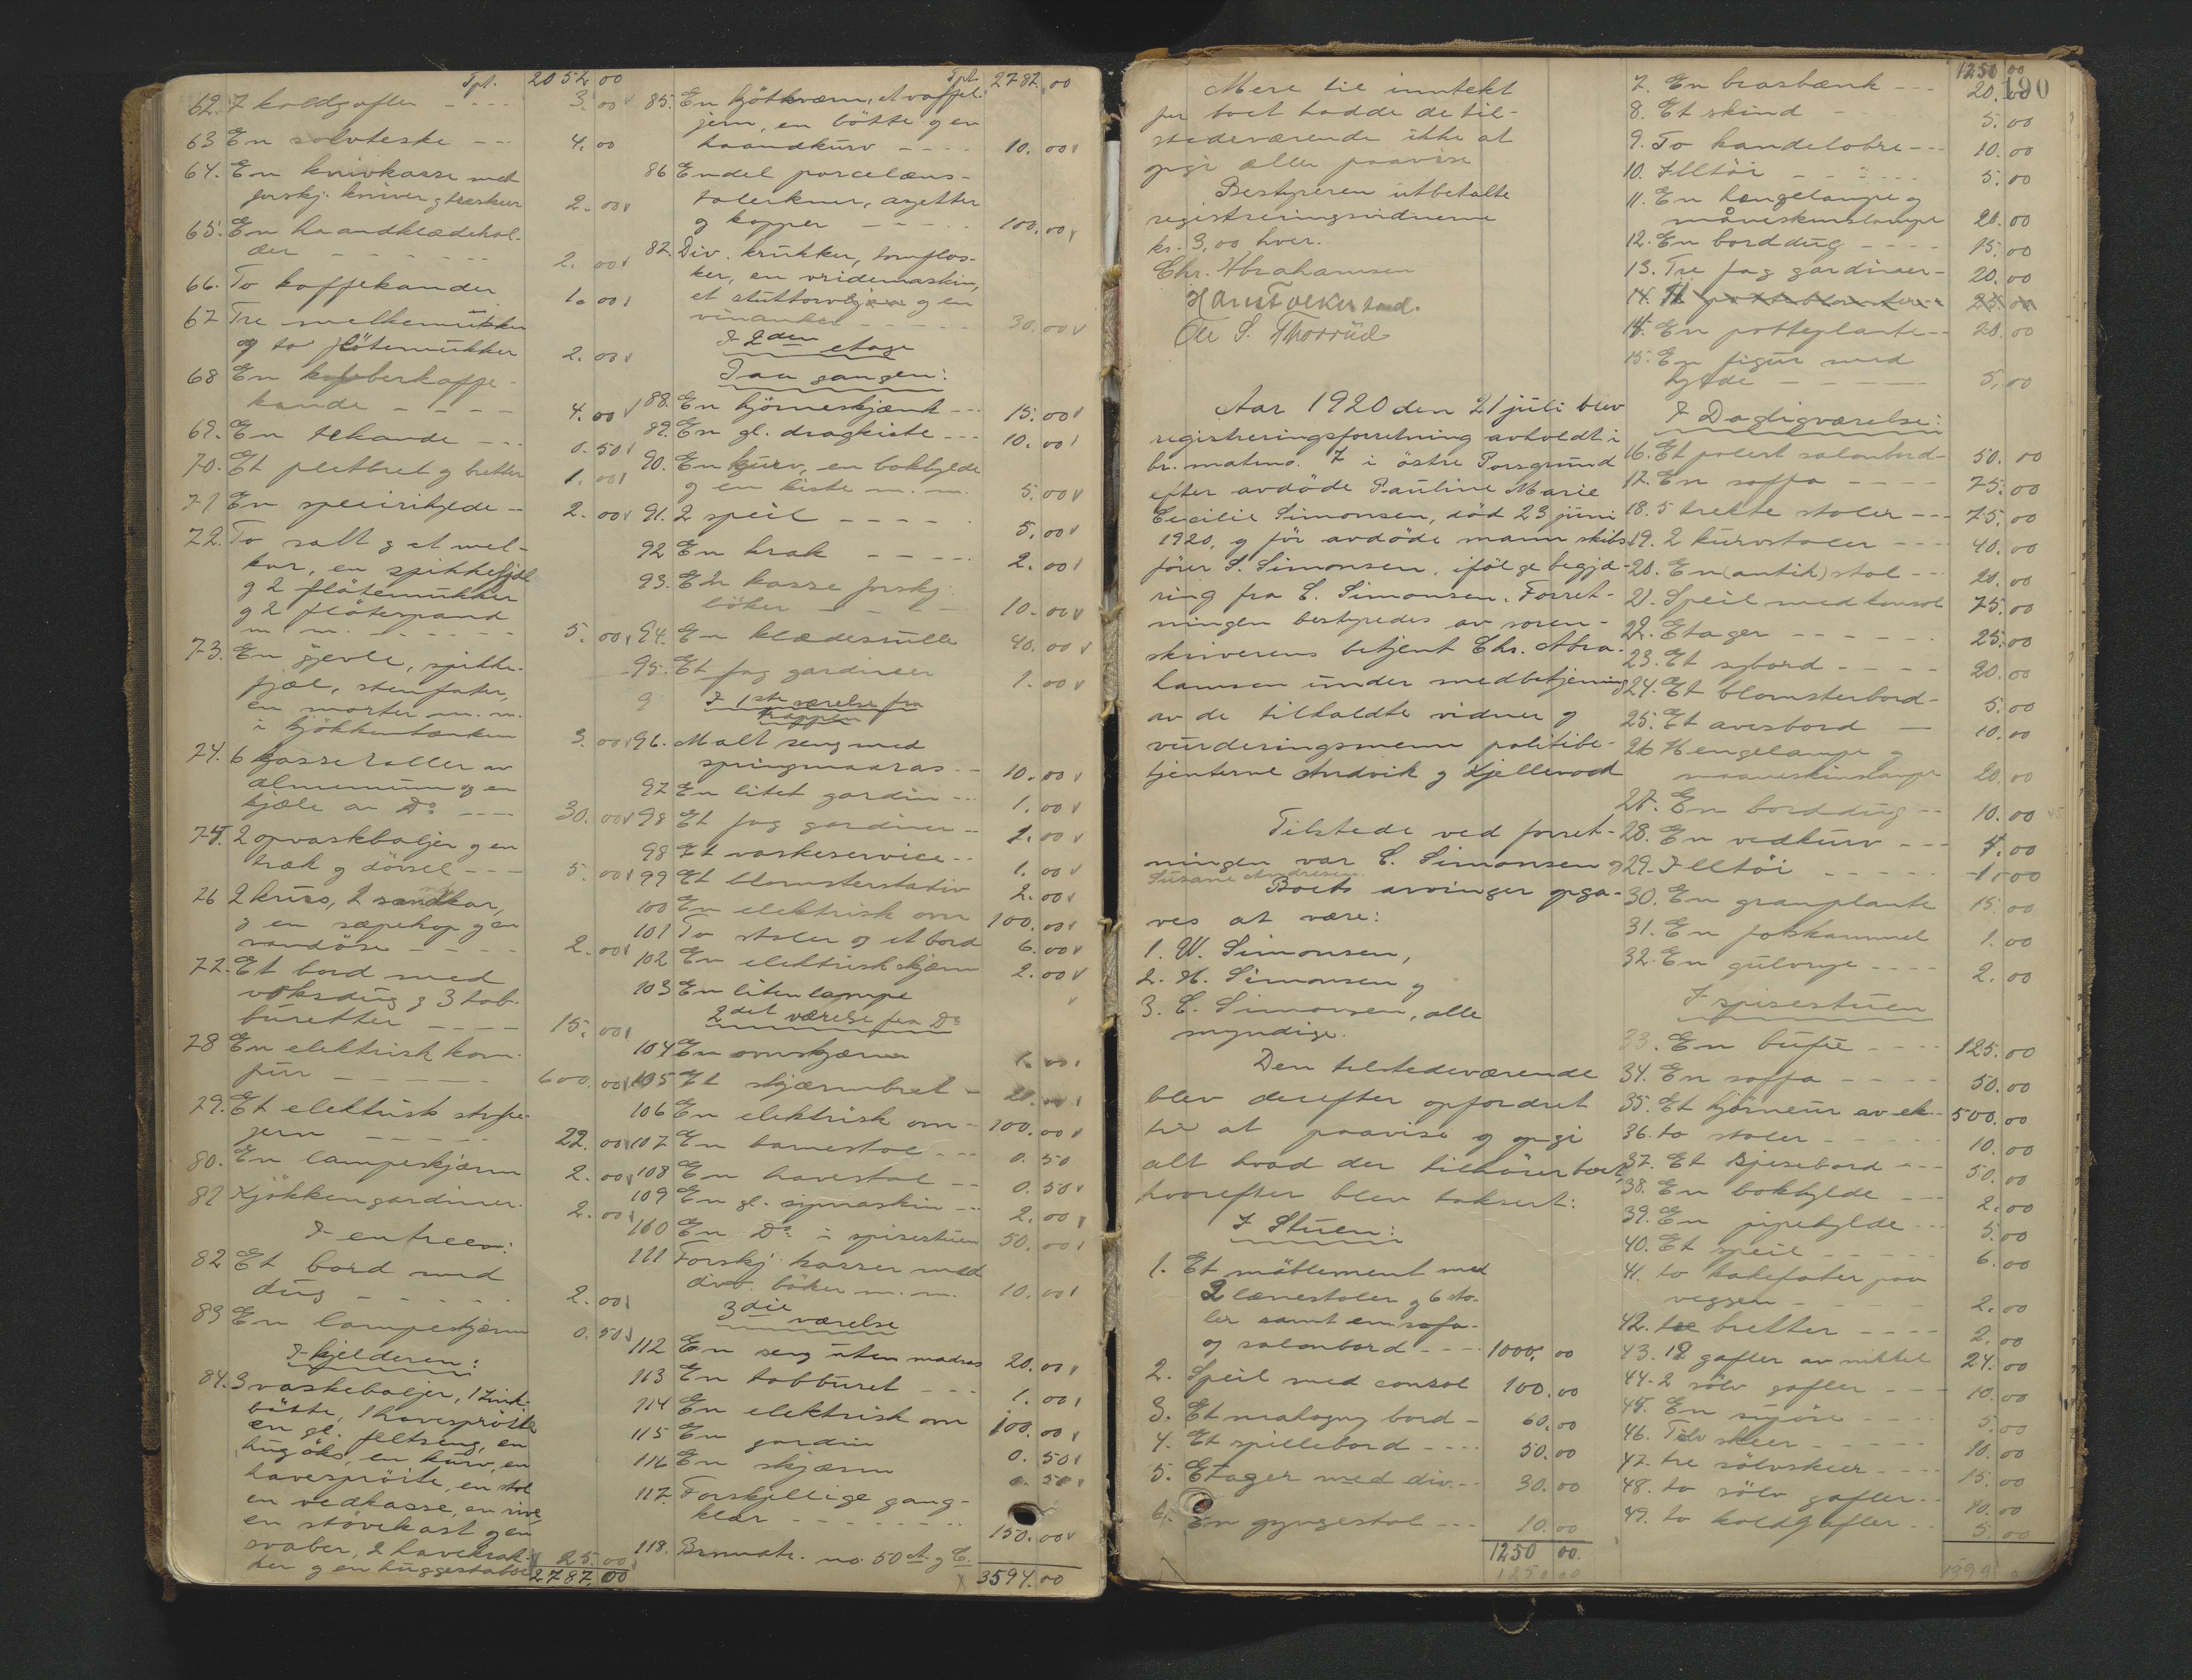 Tpt. 2052.00
62. 7 koldgafler - - - - 3.00
63 En solvteske - - - 4.00
64. En knivkasse med
forskj. kniver g træskeer 2.00
65. En haandklædehol-
der - - - - - - 2.00
66. To kaffekander 1.00
67 Tre melkemukker
og to flötemukker 2.00
68 En kobberkaffe-
kande - - - - 4.00
69. En tekande - - - 0.50
70. Et pletbret g bretter 1.00
71 En speirihylde - - 2.00
72. To salt g et mel-
kar, en spikkefjæl
g 2 flötemukker
g 2 flöterpand
m. m. - - - - - - 5.00
73. En gjevle, spikke-
fjæl, stenfater,
en morter m. m.
i kjökkenbænken 3.00
74. 6 kasseroller av
alminium g en
kjele av Do - - - 30.00
75. 2 opvaskbaljer g en
træk g dörsel - - - 5.00
76 2 krus, 2 kar,
g en sæpekop g en
vandöse - - - - 2.00
77. Et bord med
voksdug g 3 tab-
buretter - - - - 15.00
78 En elektrisk kom-
für - - - - - - 600.00
79. Et elektrisk stryke-
jern - - - - - 22.00
80. En lampeskjærm 2.00
81 Kjökkengardiner. 2.00
I entreen:
82 Et bord med
dug - - - - - - 2.00
83 En lampeskjærm 0.50
I kjelderen:
84. 3 vaskebaljer, 1 zink-
bötte, 1 havespröite
en gl. feltseng, en
hugöks, en kurv, en
havespröite, en stol
en vedkasse, en rive
en stövekast g en
svaber, 2 havekrak-
ker g en huggestabbe 25.00
2787.00
Tpt. 2782.00
85. En kjötkværn, et vaffel-
jern, en bötte g en
haandkurv - - - - 10.00
86 Endel porcelæns-
talerkner, azetter
g kopper - - - - - 100.00
87. Div. krukker, tomflas-
ker, en vridemaskin,
et g en
vinanker - - - - - 30.00
I 2den etage
Paa gangen:
88. En hjörneskjænk - - - 15.00
89. En gl. dragkiste - - - 10.00
90. En kurv, en bokhylde
g en kiste m. m. 5.00
91. 2 speil - - - - - 5.00
92 En krak - - - - 2.00
93. En kasse forskj.
böker - - - - - 10.00
94. En klædesrulle 40.00
95. Et fag gardiner 1.00
I 1ste værelse fra
trappen
96. Malt seng med
springmadras - - 10.00
97 En litet gardin - - - 1.00
98 Et fag gardiner - - 2.00
98 Et vaskeservice - - 1.00
99 Et blomsterstativ 2.00
100 En elektrisk ovn 100.00
101 To stoler og et bord 6.00
102 En elektrisk skjærm 2.00
103 En liten lampe
2det værelse fra Do
104 En ovnskjærm 1.00
105 Et skjærmbret - 2.00
106 En elektrisk ovn - 100.00
107 En barnestol - - - 0.50
108 En havestol - - 0.50
109 En gl. symaskin - - - 2.00
110 En Do i spisestuen 50.00
111 Forskj. kasser med
div. böker m. m. 10.00
3die værelse
112 En seng uten madras 20.00
113 En tabburet - - - 1.00
114 En elektrisk ovn 100.00
115 En gardin 0.50
116 En skjærm 0.50
117. Forskjellige gang-
klær - - - - - - - - 150.00
118. Brmatr. no. 50 A. g C.
3594.00
190
Mere til inntekt
for boet hadde de til-
stedeværende ikke at
opgi eller paavise
Bestyreren utbetalte
registreringsvidnerne
kr. 3,00 hver.
Chr. Abrahamsen
Hans Folkestad.
Ole S. Thorrud
Aar 1920 den 21 juli blev
registreringsforretning avholdt i
br. matrno. 7 i östre Porsgrund
efter avdöde Pauline Marie
Cecilie Simonsen, död 23 juni
1920, g för avdöde mann skibs-
förer S. Simonsen, ifölge begjæ-
ring fra C. Simonsen. Forret-
ningen bestyredes av soren-
skriverens betjent Chr. Abra-
hamsen under medbetjening
av de tilkaldte vidner g
vurderingsmenn politibe-
tjenterne Andvik g Kjellevold
Tilstede ved forret-
ningen var C. Simonsen g
Susane Andresen.
Boets arvinger opga-
ves at være:
1. W. Simonsen,
2. H. Simonsen g
3. C. Simonsen, alle
myndige.
Den tilstedeværende
blev derefter opfordret
til at paavise g opgi
alt hvad der tilhörer boet,
hvorefter blev taksert:
I Stuen:
1. Et möblement med
2 lænestoler g 6 sto-
ler samt em sofa
og salonbord - - - 1000.00
2. Speil med consol 100.00
3. Et mahogny bord - 60.00
4. Et spillebord - - - - 50.00
5. Etager med div. - - 30.00
6. En gyngestol - - - 10.00
1250 00.
1250 00
1250 00
7. En brasbænk - - - 20.00
8. Et skind - 5.00
9. To kandelabre - - - 10.00
10. Ildtöi - - - - - 5.00
11. En hængelampe g
måneskinslampe 20.00
12. En borddug - - - - 15.00
13. Tre fag gardiner - 20.00
14. 11 potteblomster - - 25.00
14. En potteplante - - 20.00
15. En figur med
hylde - - - - - 5.00
I Dagligværelse:
16. Et polert salonbord - 50.00
17. En soffa - - - - 75.00
18. 5 trekte stoler - - - 75.00
19. 2 kurvstoler - - - 40.00
20. En (antik) stol - - 20.00
21. Speil med konsol 75.00
22. Etager - - - - - - 25.00
23. Et sybord - - - - 20.00
24. Et blomsterbord - 5.00
25. Et avisbord - 10.00
26 Hengelampe g
maaneskinslampe 20.00
27. En borddug - - 10.00
28. En vedkurv - - - 4.00
29. Ildtöi - - - - - 1.00
30. En granplante 15.00
31. En fotskammel 1.00
32. En gulvrye - - - - 2.00
I spisestuen
33. En bufée - - - - 125.00
34. En soffa - - - - 50.00
35. Et hjörneur av ek - 500.00
36. to stoler - - - - - 10.00
37. Et spisebord - - - 50.00
38. En bokhylde - - - 2.00
39. En pipehylde - - - 5.00
40. Et speil - - - - - 6.00
41. to kakefater paa
veggen - - - - - 2.00
42. tre bretter - - - - 2.00
43. 12 gafler av nikkel 24.00
44. 2 sölv gafler - - - 10.00
45. En - - - - 5.00
46. Tolv skeer - - - - - 10.00
47. tre sölvskeer - - - 15.00
48. to sölv gafler - - 10.00
49. to koldgafler - - 5.00